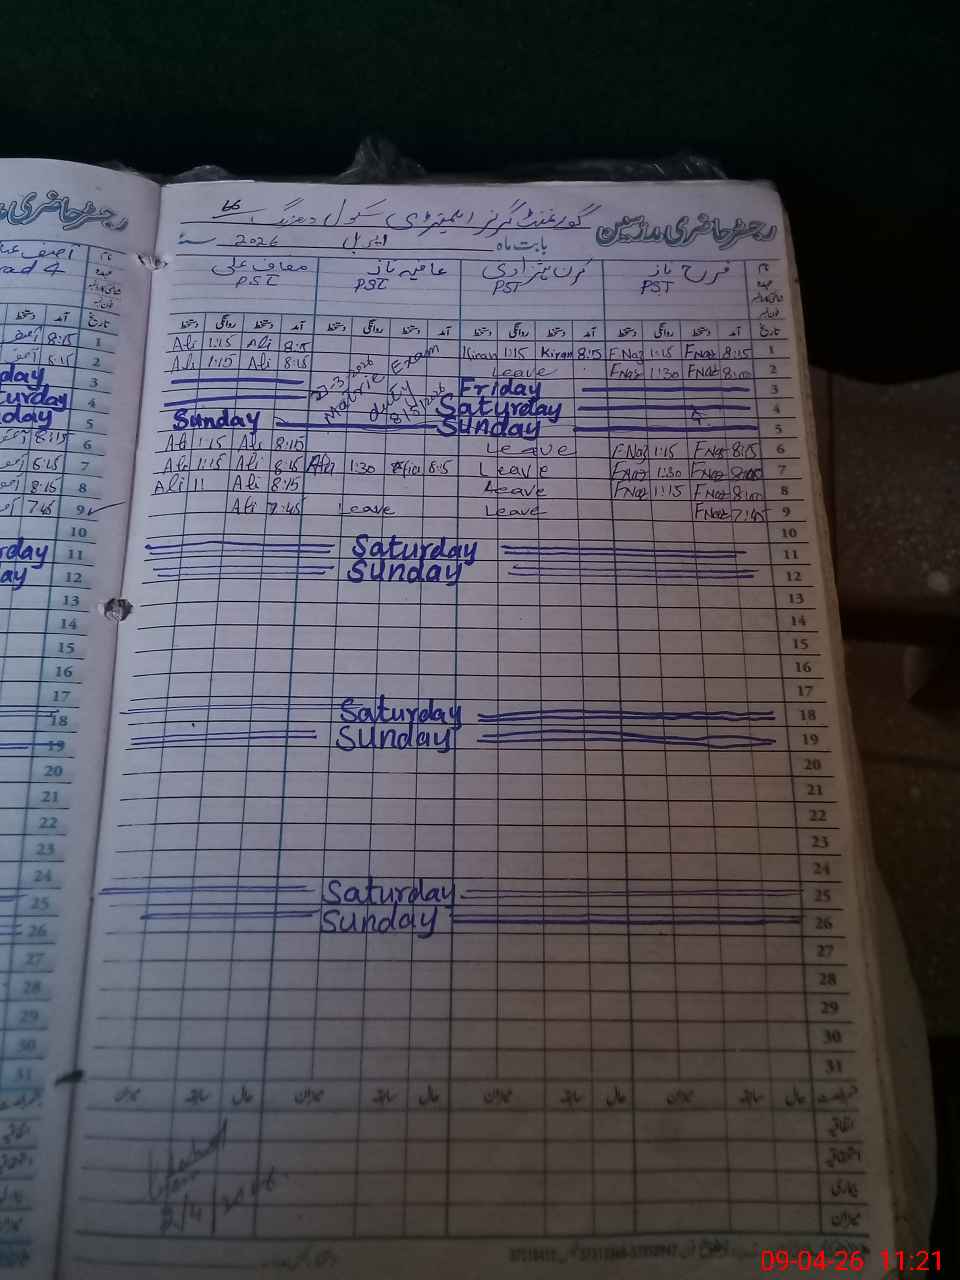 رجسٹر حاضری ملازمین گورنمنٹ گرلز ایلیمنٹری سکول
بابت ماہ اپریل 2026 سنہ
نام فرح ناز عافیہ ناز معاف علی
PST PST PST PST
تاریخ آمد دستخط روانگی دستخط آمد دستخط روانگی دستخط آمد دستخط روانگی دستخط آمد دستخط روانگی دستخط
Ali 1:15 Ali 8:15 Kiran 1:15 Kiran 8:15 F.Naz 1:15 FNaz 8:15 1
Ali 1:15 Ali 8:15 Leave FNaz 1:30 FNaz 8:00 2
Matric Exam duty
Friday 3
Saturday 4
Sunday Sunday 5
Ali 1:15 Ali 8:15 Leave FNaz 1:15 FNaz 8:15 6
Ali 1:15 Ali 8:15 Afia 1:30 Afia 8:15 Leave FNaz 1:30 FNaz 8:00 7
Ali 11 Ali 8:15 Leave FNaz 1:15 FNaz 8:00 8
Ali 7:45 Leave Leave FNaz 7:45 9
10
Saturday 11
Sunday 12
13
14
15
16
17
Saturday 18
Sunday 19
20
21
22
23
24
Saturday 25
Sunday 26
27
28
29
30
31
میزان سابقہ حال میزان سابقہ حال میزان سابقہ حال میزان سابقہ حال
اتفاقی
بیماری
میزان
09-04-26 11:21